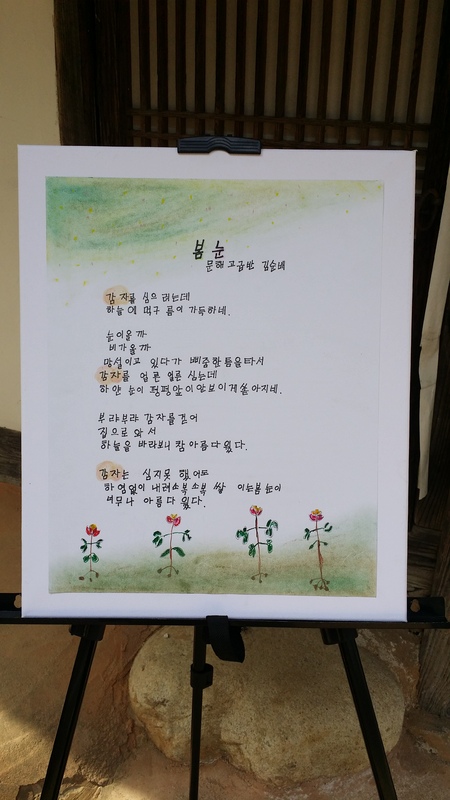 봄 눈
문해 고급반 김순네
감자를 심으려는데
하늘에 먹구름이 가득하네.
눈이올까
비가올까
망설이고 있다가 삐줌한틈을타서
감자를 얼른 얼른 심는데
하얀 눈이 펑펑앞이안보이게쏟아지네.
부랴부랴 감자를걷어
집으로 와서
하늘을 바라보니 참 아름다웠다.
감자는 심지못했어도
하염없이 내려소복소복 쌓이는봄눈이
너무나 아름다웠다.